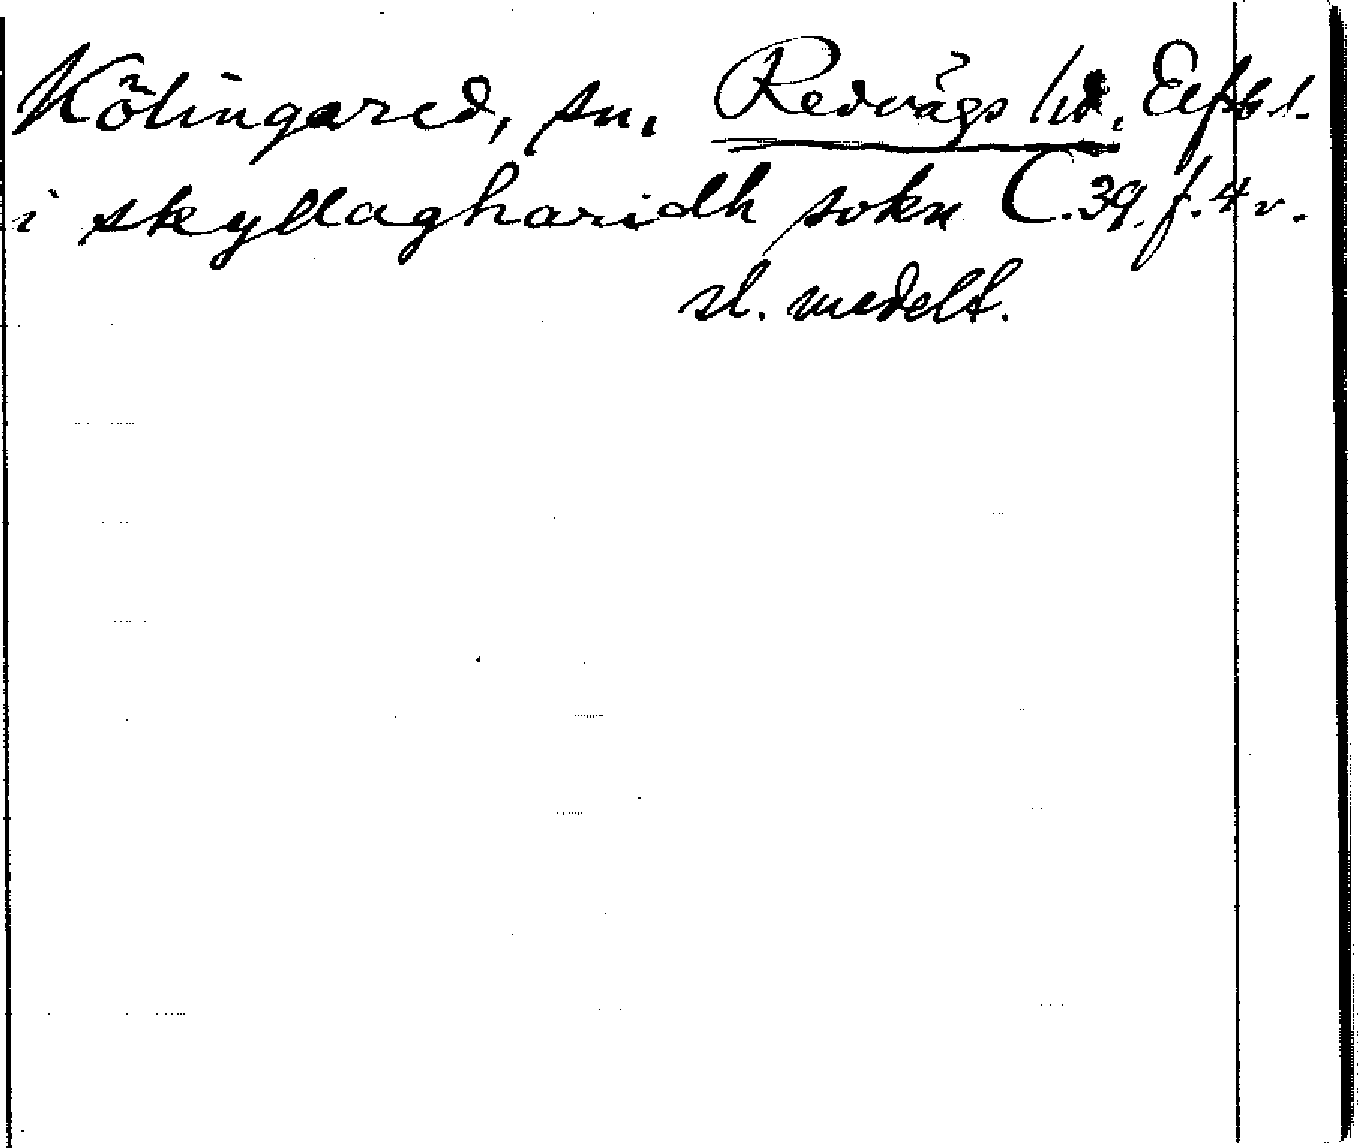 Kölingared, sn, Redvägs hd, Elfsbl.
i skyllagharidh sokn C.39. f.4 v.
sl. medelt.